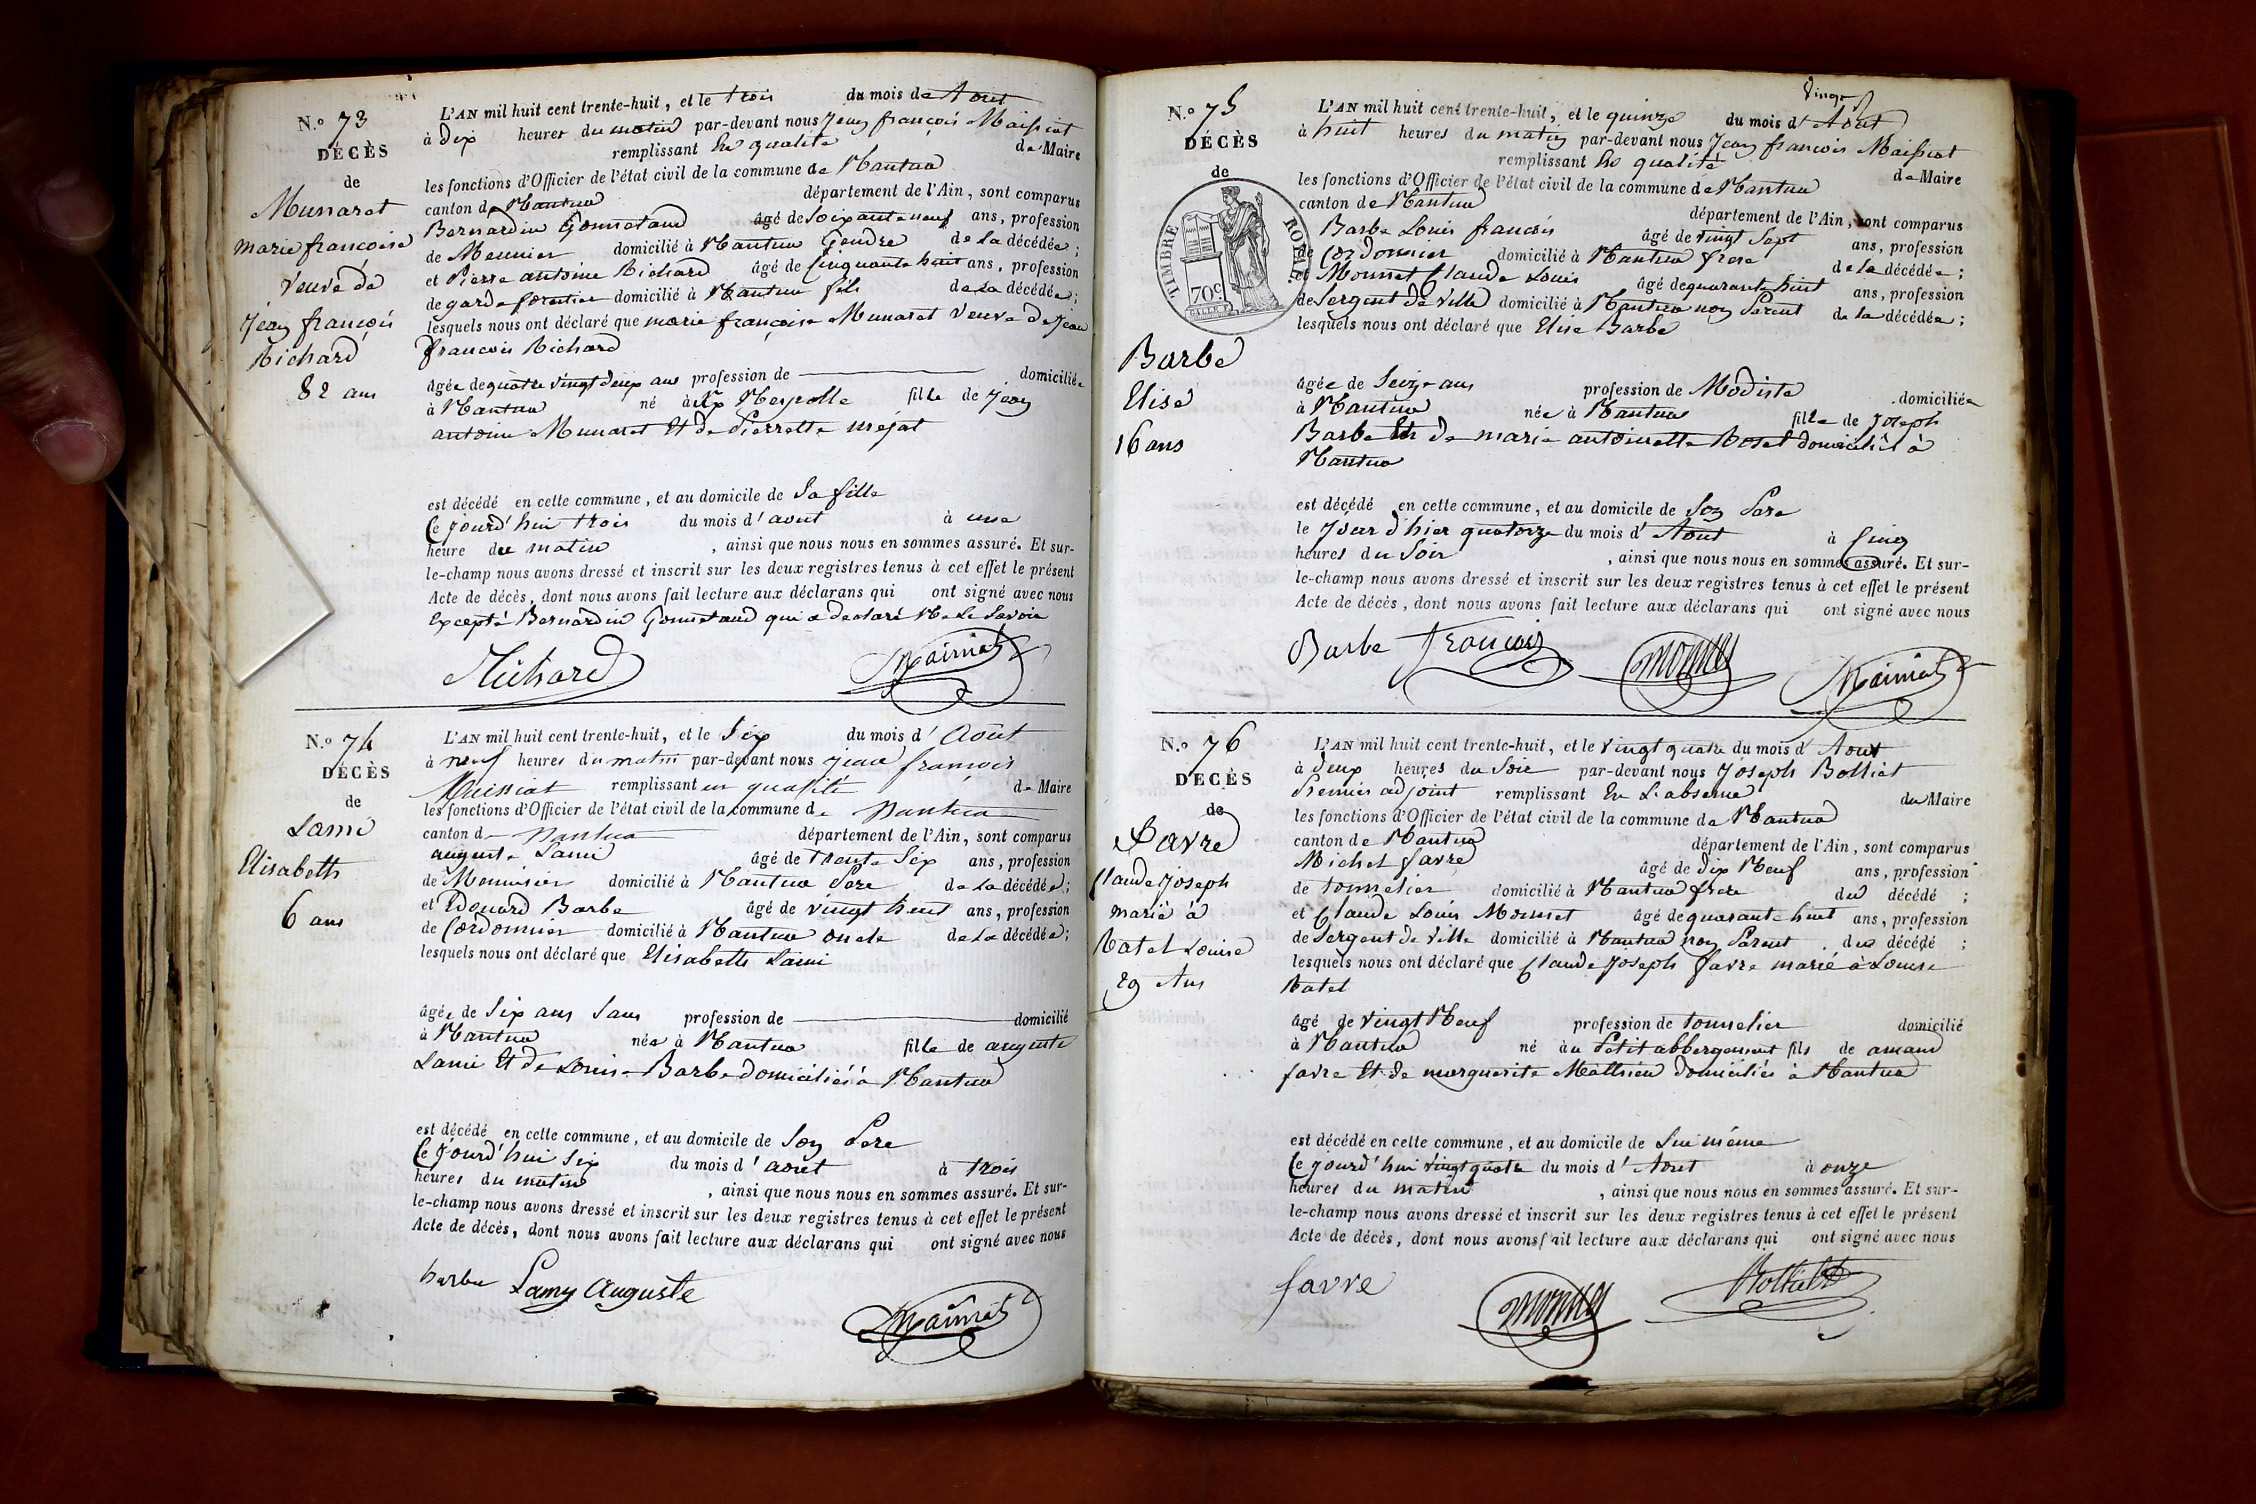 N.º 73
DÉCÈS
de
Munaret
marie françoise
veuve de
jean françois
Richard
82 ans
L'AN mil huit cent trente-huit, et le trois du mois de Aout
à dix heures du matin par-devant nous jean françois Maissiat
remplissant en qualité de Maire
les fonctions d'Officier de l'état civil de la commune de Nantua
canton de Nantua département de l'Ain, sont comparus
Bernardin Gonnetand âgé de soixante neuf ans, profession
de Meunier domicilié à Nantua Gendre de La décédée;
et Pierre antoine Richard âgé de Cinquante huit ans, profession
de garde forestier domicilié à Nantua fils de La décédée;
lesquels nous ont déclaré que marie françoise Munaret veuve de jean
françois Richard
âgée de quatre vingt deux ans profession de domiciliée
à Nantua né à Neyrolle fille de jean
antoine Munaret Et de Pierrette mejat
est décédé en cette commune, et au domicile de Sa fille
Ce jourd'hui trois du mois d'aout à une
heure du matin, ainsi que nous nous en sommes assuré. Et sur-
le-champ nous avons dressé et inscrit sur les deux registres tenus à cet effet le présent
Acte de décès, dont nous avons fait lecture aux déclarans qui ont signé avec nous
Excepté Bernardin Gonnetand qui a declaré Ne Le Savoir
Richard Maissiat
N.º 74
DÉCÈS
de
Lami
Elisabeth
6 ans
L'AN mil huit cent trente-huit, et le six du mois d'Août
à neuf heures du matin par-devant nous jean françois
Maissiat remplissant en qualité de Maire
les fonctions d'Officier de l'état civil de la commune de Nantua
canton de Nantua département de l'Ain, sont comparus
auguste Lami âgé de trente Six ans, profession
de Menuisier domicilié à Nantua Pere de La décédée;
et Edouard Barbe âgé de vingt huit ans, profession
de Cordonnier domicilié à Nantua oncle de La décédée;
lesquels nous ont déclaré que Elisabeth Lami
âgée de Six ans Sans profession de domicilié
à Nantua née à Nantua fille de auguste
Lami Et de Louise Barbe domiciliés à Nantua
est décédé en cette commune, et au domicile de Son Pere
Ce jourd'hui six du mois d'aout à trois
heures du matin, ainsi que nous nous en sommes assuré. Et sur-
le-champ nous avons dressé et inscrit sur les deux registres tenus à cet effet le présent
Acte de décès, dont nous avons fait lecture aux déclarans qui ont signé avec nous
barbe Lamy Auguste
Maissiat
N.º 75
DÉCÈS
de
TIMBRE ROYAL.
70c
Barbe
Elise
16 ans
L'AN mil huit cent trente-huit, et le quinze du mois d'Aout
à huit heures du matin par-devant nous Jean françois Maissiat
remplissant En qualité de Maire
les fonctions d'Officier de l'état civil de la commune de Nantua
canton de Nantua département de l'Ain, sont comparus
Barbe Louis françois âgé de vingt sept ans, profession
de Cordonnier domicilié à Nantua frere de La décédée;
et Monnet Claude Louis âgé de quarante huit ans, profession
de Sergent de Ville domicilié à Nantua non Parent de La décédée;
lesquels nous ont déclaré que Elise Barbe
âgée de Seize ans profession de Modiste domiciliée
à Nantua née à Nantua fille de Joseph
Barbe Et de marie antoinette Rosel domiciliés à
Nantua
est décédé en cette commune, et au domicile de Son Pere
le Jour d'hier quatorze du mois d'Aout à Cinq
heures du Soir, ainsi que nous nous en sommes assuré. Et sur-
le-champ nous avons dressé et inscrit sur les deux registres tenus à cet effet le présent
Acte de décès, dont nous avons fait lecture aux déclarans qui ont signé avec nous
Barbe François Monnet Maissiat
N.º 76
DÉCÈS
de
Favre
Claude Joseph
marié à
Ratel Louise
29 Ans
L'AN mil huit cent trente-huit, et le vingt quatre du mois d'Aout
à deux heures du Soir par-devant nous Joseph Bolliet
Premier adjoint remplissant En L'absence du Maire
les fonctions d'Officier de l'état civil de la commune de Nantua
canton de Nantua département de l'Ain, sont comparus
Michel favre âgé de Dix Neuf ans, profession
de tonnelier domicilié à Nantua frere du décédé;
et Claude Louis Monnet âgé de quarante huit ans, profession
de Sergent de Ville domicilié à Nantua non Parent du décédé;
lesquels nous ont déclaré que Claude Joseph favre marié à Louise
Ratel
âgé de vingt Neuf profession de tonnelier domicilié
à Nantua né au Petit abbergement fils de amand
favre Et de marguerite Mathieu domiciliés à Nantua
est décédé en cette commune, et au domicile de Lui même
Ce jourd'hui vingt quatre du mois d'Aout à onze
heures du matin, ainsi que nous nous en sommes assuré. Et sur-
le-champ nous avons dressé et inscrit sur les deux registres tenus à cet effet le présent
Acte de décès, dont nous avons fait lecture aux déclarans qui ont signé avec nous
favre Monnet Bolliet